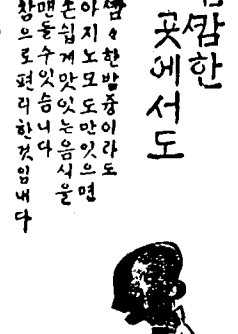 캄캄한
곳에서도
캄々한밤중이라도
아지노모도만잇으면
손쉽게맛잇는음식을
맨둘수잇습니다
참으로편리한것임내다